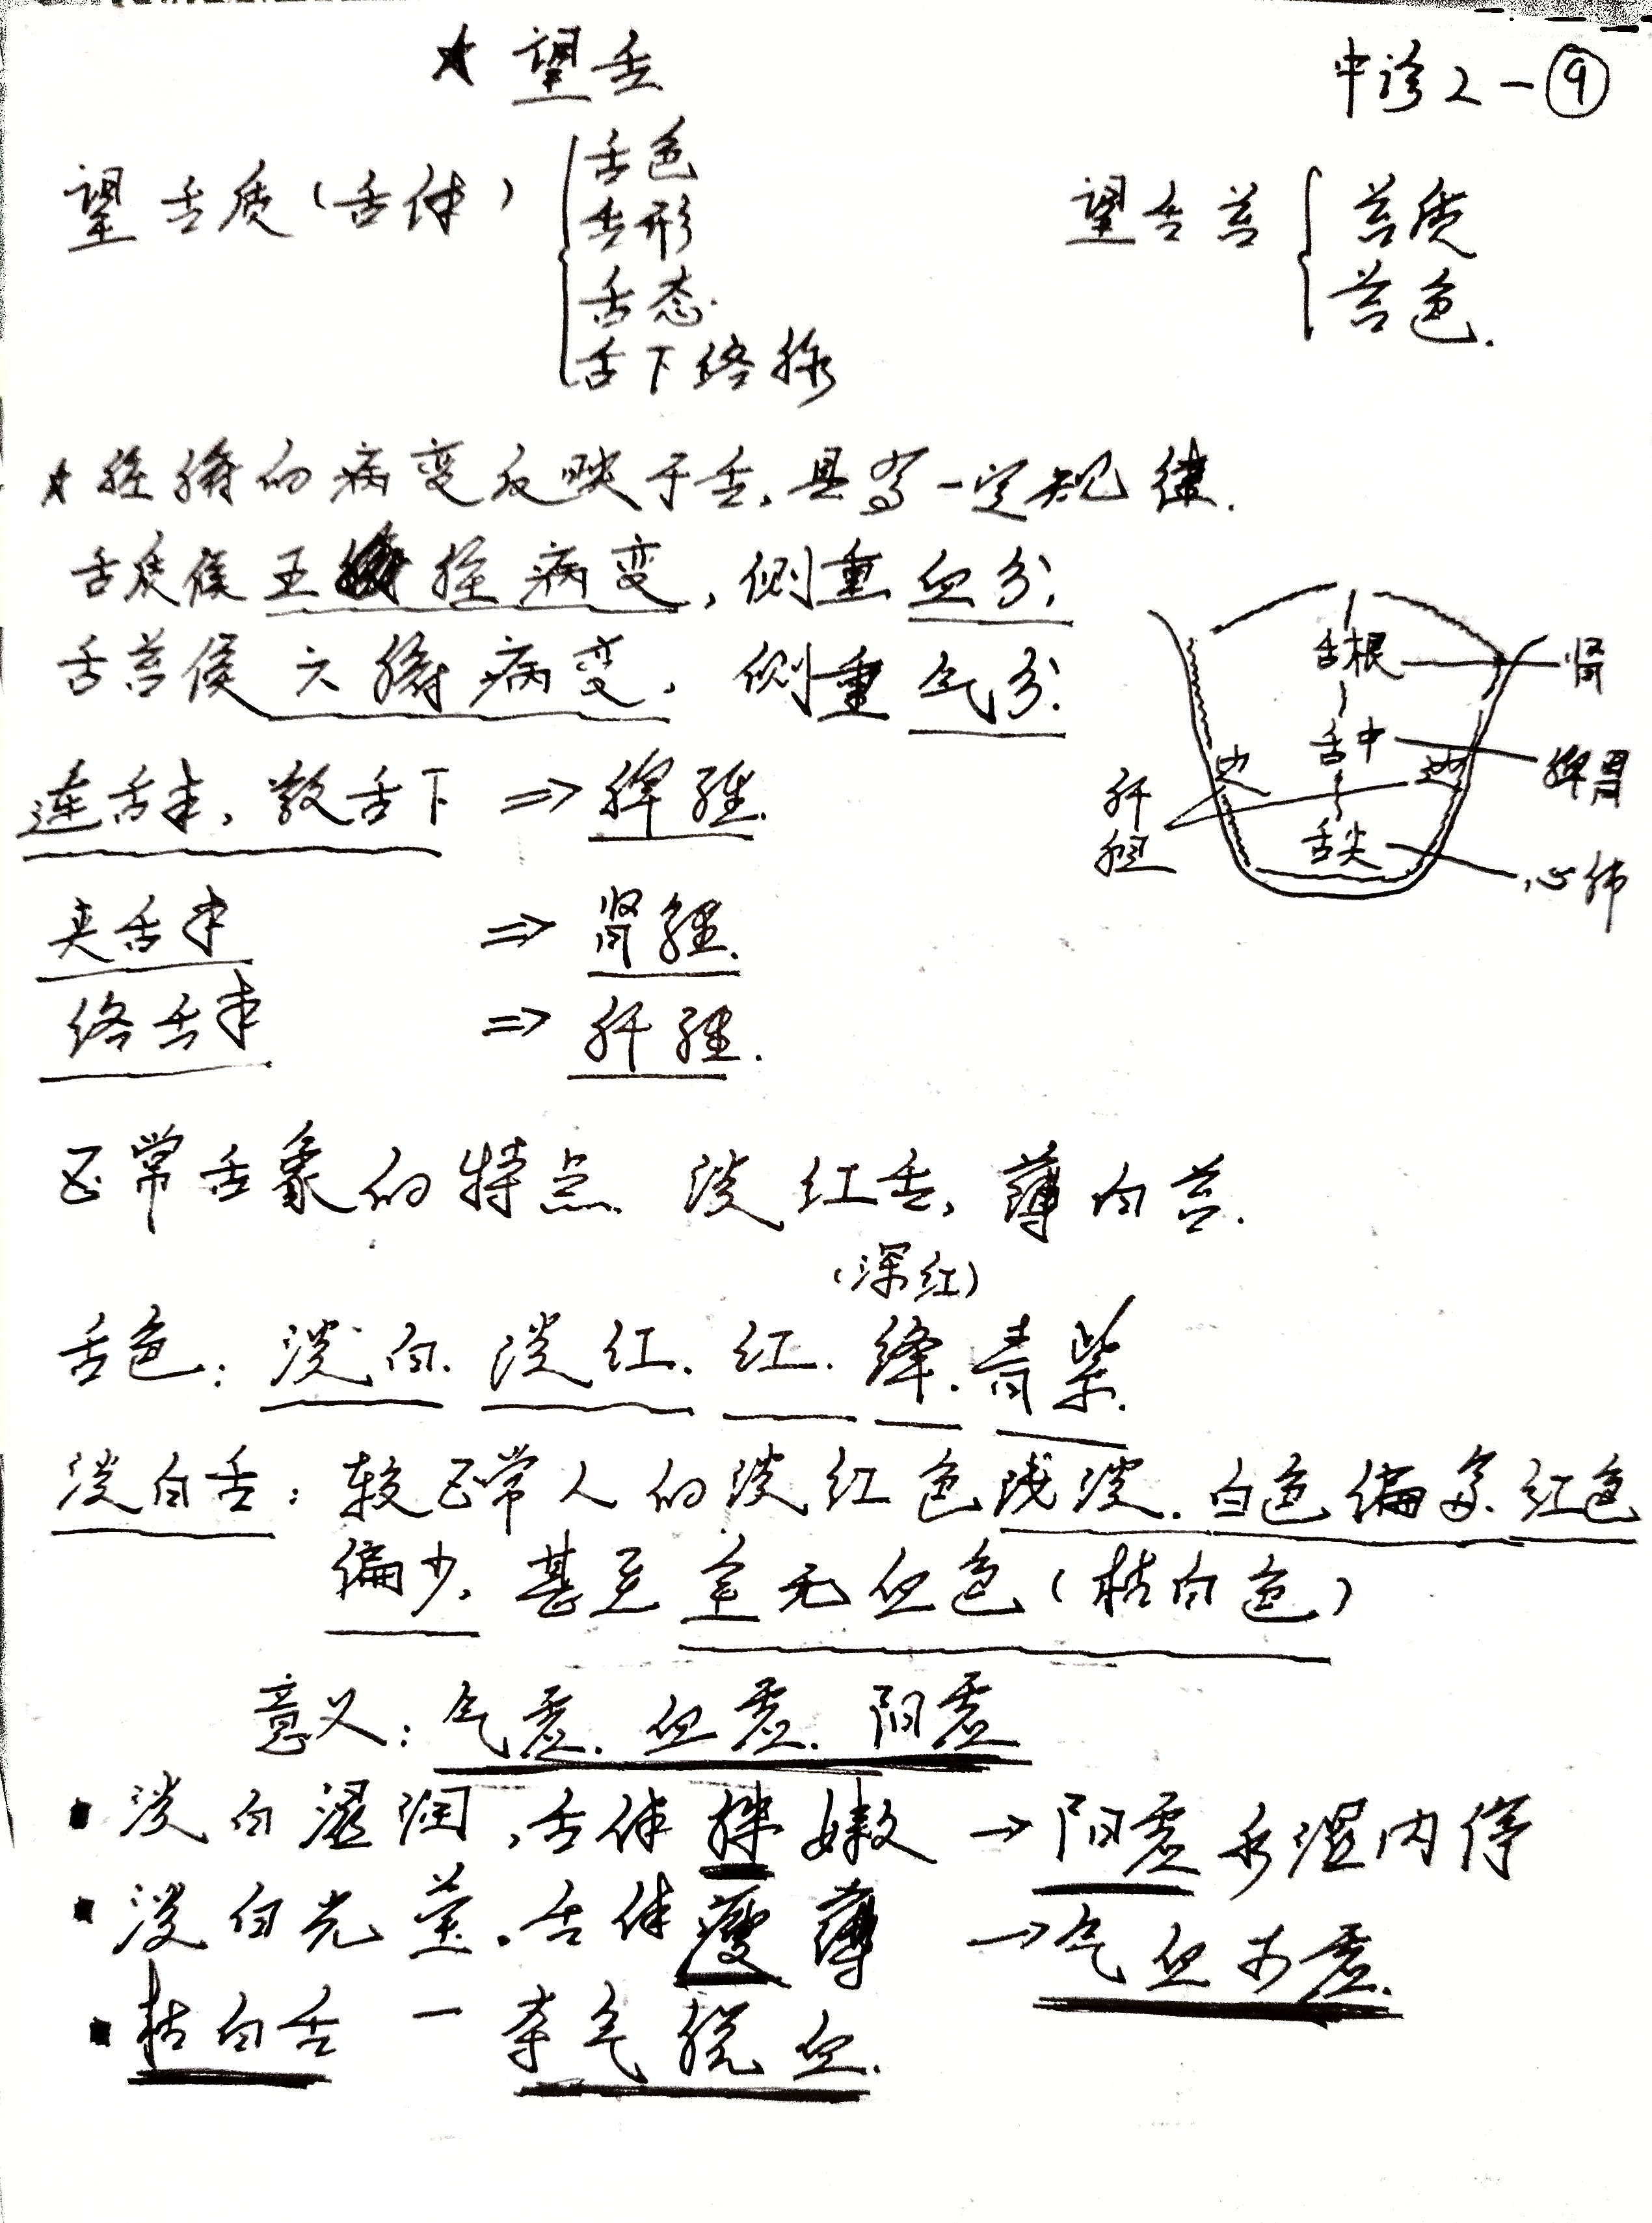 ★ 望舌
中诊2-⑨
望舌质(舌体)
舌色
舌形
舌态.
舌下络脉
望舌苔
苔质
苔色.
★脏腑的病变反映于舌,具有一定规律.
舌质候五脏病变,侧重血分,
舌苔候六腑病变,侧重气分.
连舌本,散舌下 => 脾经.
夹舌本 => 肾经.
络舌本 => 肝经.
舌根 肾
舌中 脾胃
边 边
肝胆
舌尖 心肺
正常舌象的特点 淡红舌,薄白苔.
(深红)
舌色: 淡白. 淡红. 红. 绛. 青紫.
淡白舌: 较正常人的淡红色浅淡. 白色偏多. 红色
偏少, 甚至全无血色(枯白色)
意义: 气虚. 血虚. 阳虚
▪ 淡白湿润,舌体胖嫩 → 阳虚水湿内停
▪ 淡白光莹.舌体瘦薄 → 气血两虚.
▪ 枯白舌 — 夺气脱血.